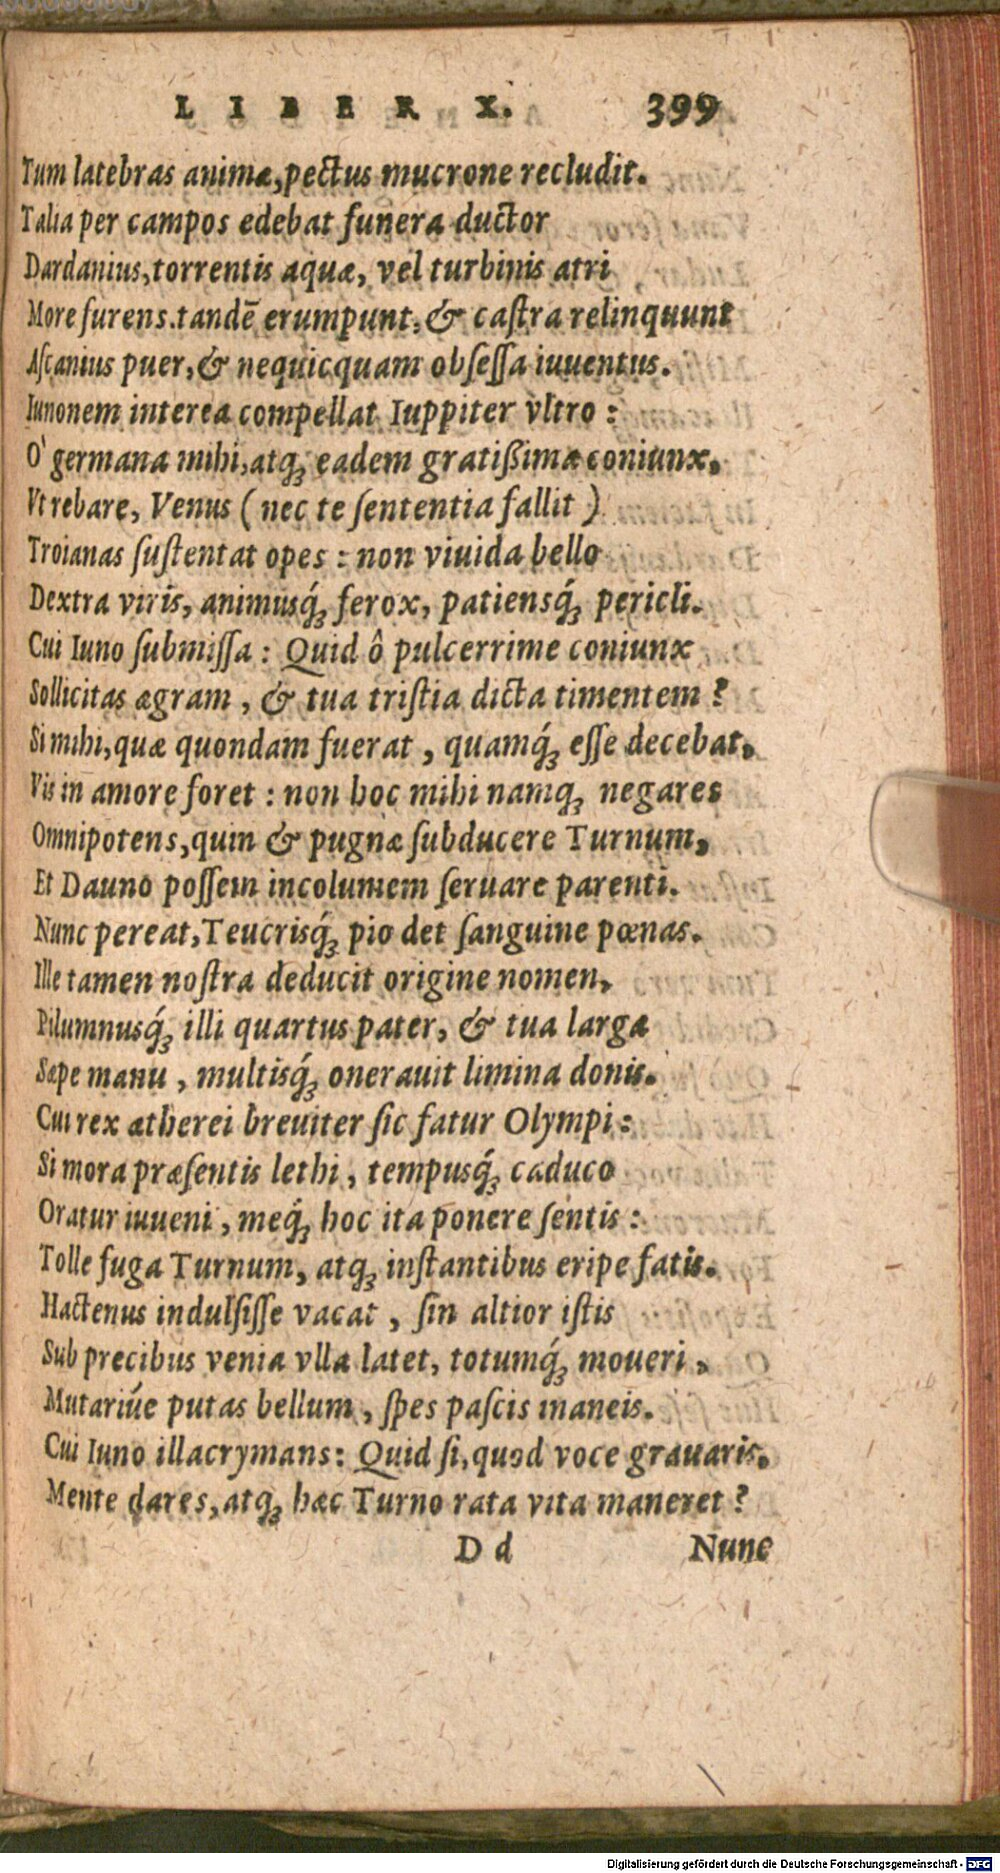 LIBER X. 399
Tum latebras animæ, pectus mucrone recludit.
Talia per campos edebat funera ductor
Dardanius, torrentis aquæ, vel turbinis atri
More furens. tandē erumpunt, & caſtra relinquunt
Aſcanius puer, & nequicquam obſeſſa iuuentus.
Iunonem interea compellat Iuppiter vltro :
O' germana mihi, atq; eadem gratißima coniunx,
Vt rebare, Venus ( nec te ſententia fallit )
Troianas ſuſtentat opes : non viuida bello
Dextra viris, animusq́; ferox, patiensq́; pericli.
Cui Iuno ſubmiſſa : Quid ô pulcerrime coniunx
Sollicitas ægram , & tua triſtia dicta timentem ?
Si mihi, quæ quondam fuerat , quamq́; eſſe decebat,
Vis in amore foret : non hoc mihi namq; negares
Omnipotens, quin & pugnæ ſubducere Turnum,
Et Dauno poſſem incolumem ſeruare parenti.
Nunc pereat, Teucrisq́; pio det ſanguine pœnas.
Ille tamen noſtra deducit origine nomen,
Pilumnusq́; illi quartus pater, & tua larga
Sæpe manu , multisq́; onerauit limina donis.
Cui rex ætherei breuiter ſic fatur Olympi :
Si mora præſentis lethi , tempusq́; caduco
Oratur iuueni , meq́; hoc ita ponere ſentis :
Tolle fuga Turnum, atq; inſtantibus eripe fatis.
Hactenus indulſiſſe vacat , ſin altior iſtis
Sub precibus venia vlla latet, totumq́; moueri ,
Mutariúe putas bellum , ſpes paſcis inaneis.
Cui Iuno illacrymans : Quid ſi, quod voce grauaris,
Mente dares, atq; hæc Turno rata vita maneret ?
D d Nunc
Digitalisierung gefördert durch die Deutsche Forschungsgemeinschaft - DFG